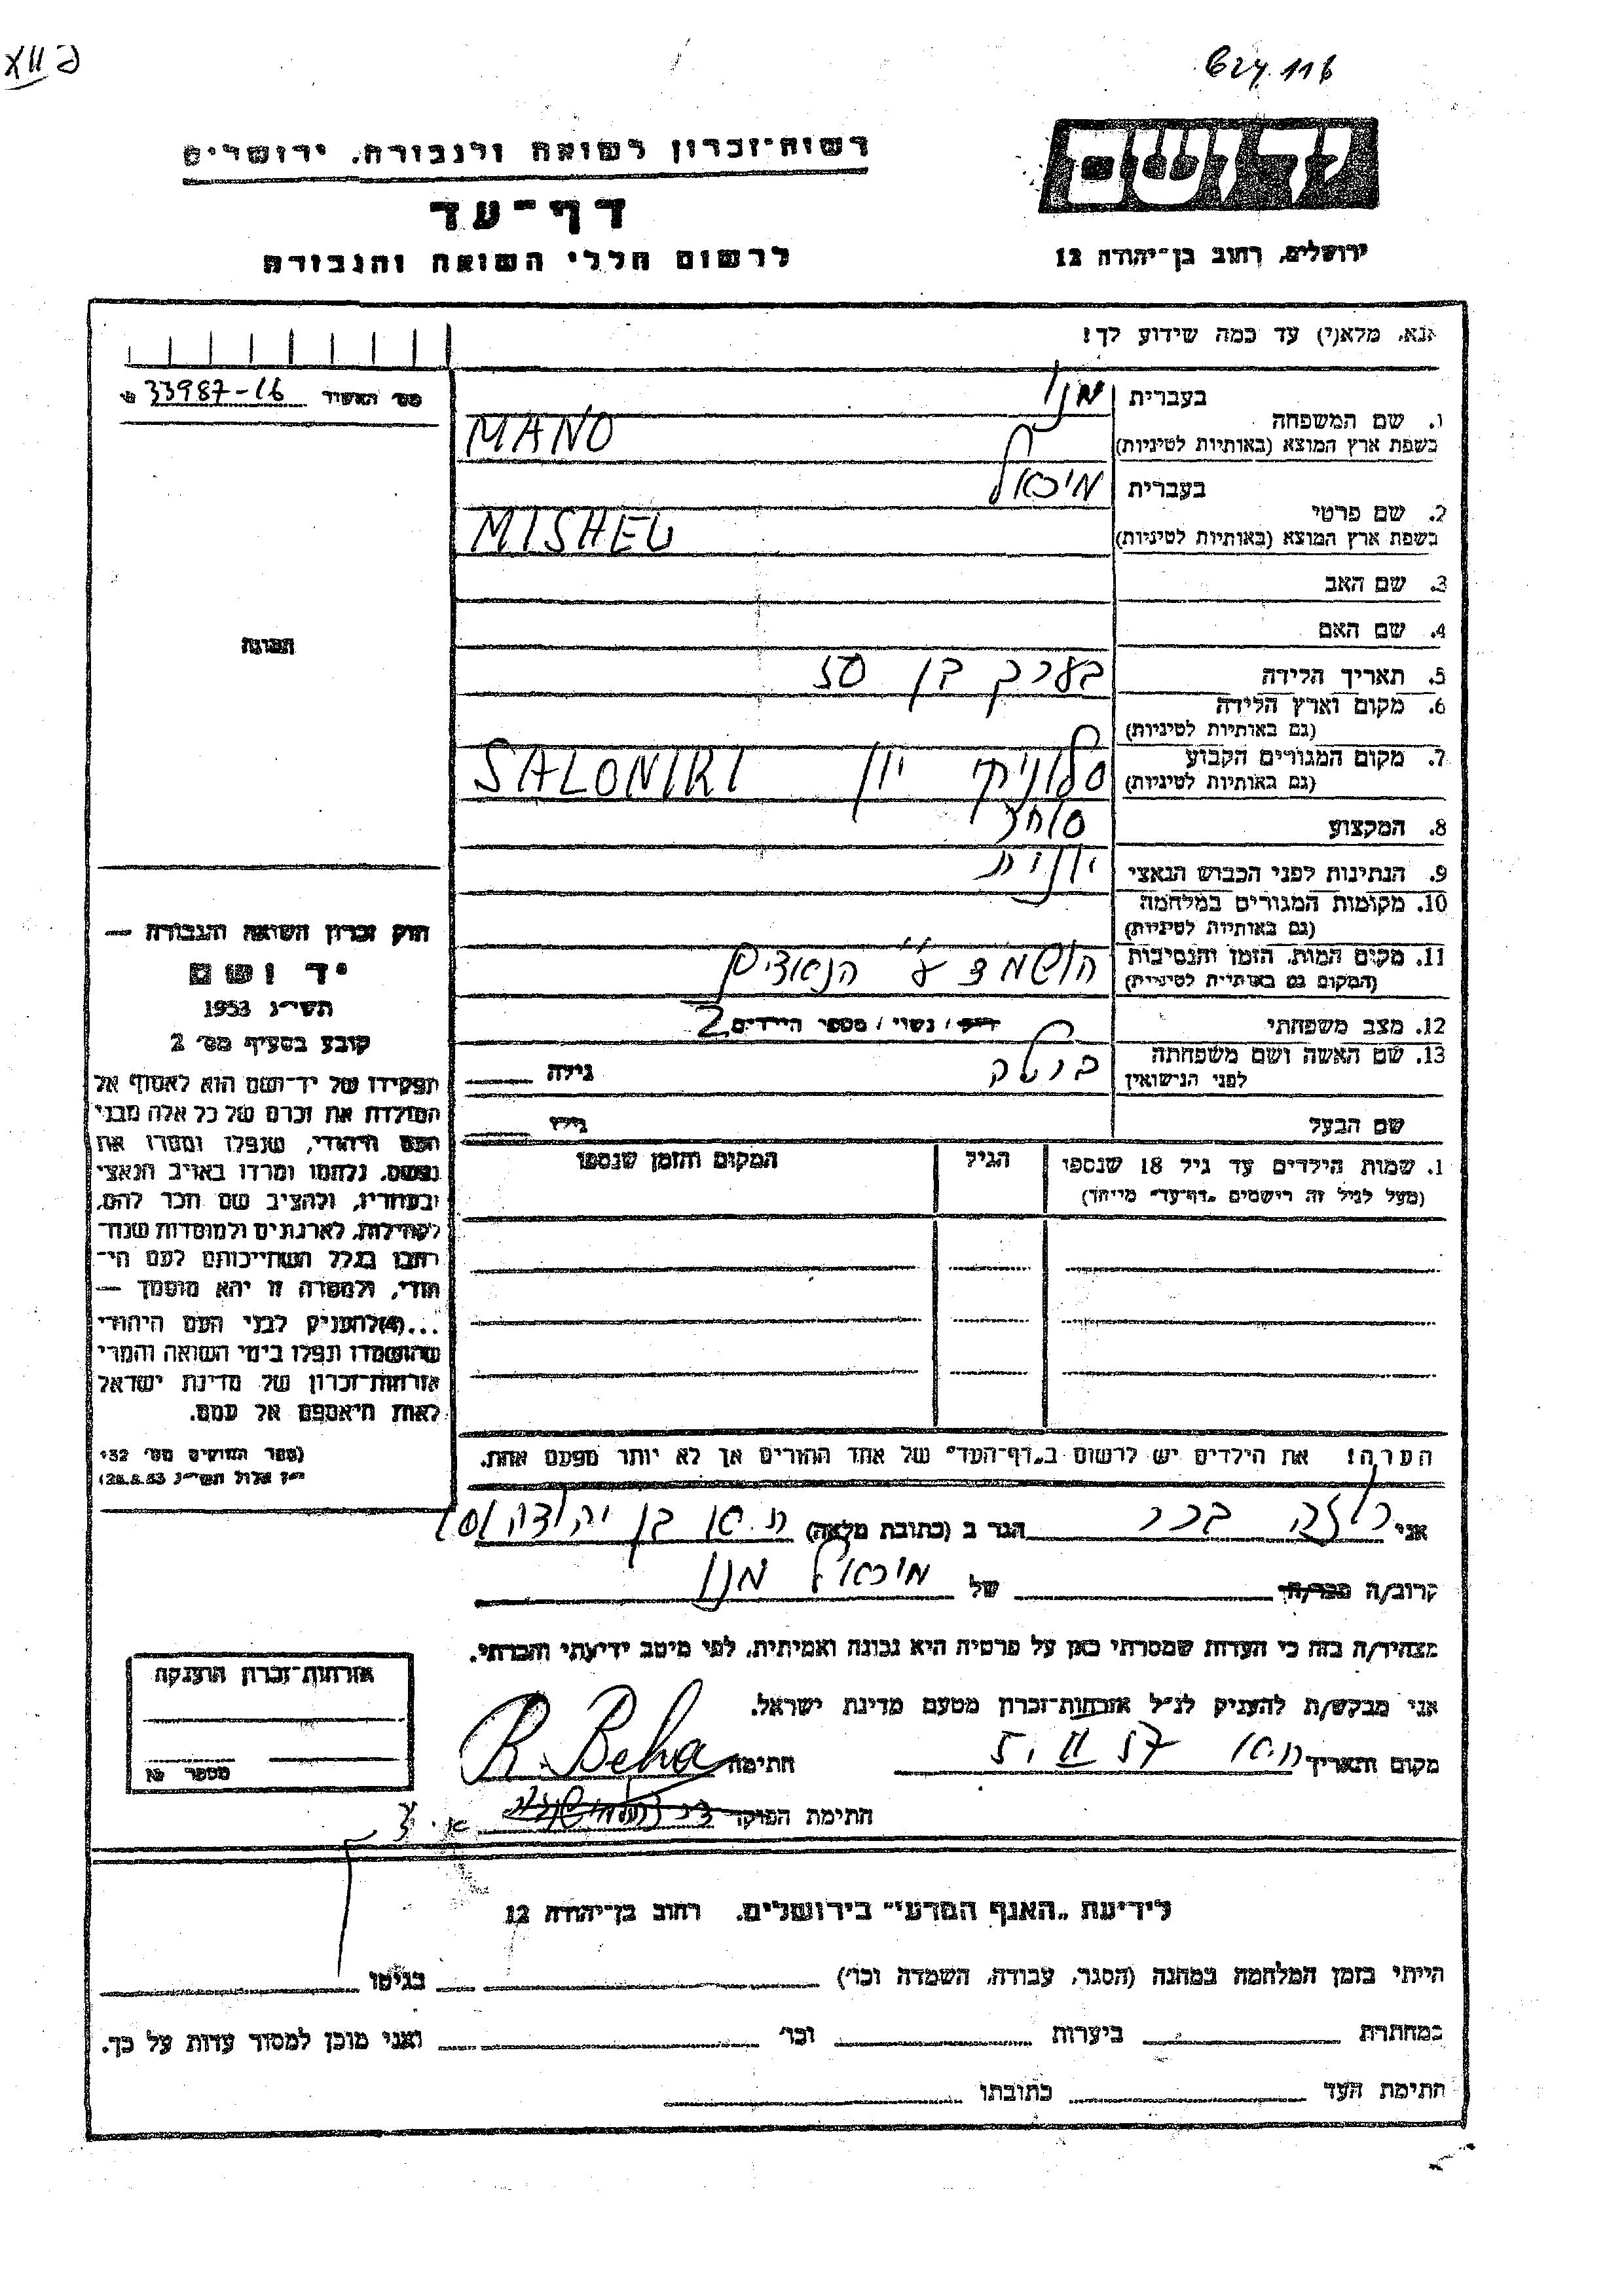 624.116
רשות־זכרון לשואה ולגבורה, ירושלים
דף־עד
לרשום חללי השואה והגבורה
ירושלים, רחוב בן־יהודה 12
אנא, מלא(י) עד כמה שידוע לך!
מס׳ האשיד 33987-16
בעברית מנו
1. שם המשפחה
בשפת ארץ המוצא (באותיות לטיניות) MANO
בעברית מיכאל
2. שם פרטי
בשפת ארץ המוצא (באותיות לטיניות) MISHEL
3. שם האב
4. שם האם
5. תאריך הלידה בערך בן 50
6. מקום וארץ הלידה
(גם באותיות לטיניות)
7. מקום המגורים הקבוע סלוניקי יון SALONIKI
(גם באותיות לטיניות)
8. המקצוע סוחר
9. הנתינות לפני הכבוש הנאצי יונית
10. מקומות המגורים במלחמה
(גם באותיות לטיניות)
11. מקום המות, הזמן והנסיבות הושמד ע״י הנאצים
(המקום גם באותיות לטיניות)
12. מצב משפחתי רווק / נשוי / מספר הילדים 2
13. שם האשה ושם משפחתה
לפני הנישואין גילה
שם הבעל גילו
1. שמות הילדים עד גיל 18 שנספו הגיל המקום והזמן שנספו
(מעל לגיל זה רישמים „דף־עד״ מיוחד)
הערה! את הילדים יש לרשום ב„דף־העד״ של אחד ההורים אך לא יותר מפעם אחת.
התמונה
חוק זכרון השואה והגבורה —
יד ושם
תשי״ג 1953
קובע בסעיף מס׳ 2
תפקידו של יד־ושם הוא לאסוף אל
המולדת את זכרם של כל אלה מבני
העם היהודי, שנפלו ומסרו את
נפשם, נלחמו ומרדו באויב הנאצי
ובעוזריו, ולהציב שם וזכר להם,
לקהילות, לארגונים ולמוסדות שנח־
רבו בגלל השתייכותם לעם הי־
הודי, ולמטרה זו יהא מוסמך —
...(4)להעניק לבני העם היהודי
שהושמדו ונפלו בימי השואה והמרי
אזרחות־זכרון של מדינת ישראל
לאות היאספם אל עמם.
(ספר החוקים מס׳ 132
י״ז אלול תשי״ג 28.8.53)
אני רוזה בכר הגר ב (כתובת מלאה) ת.א בן יהודה
קרוב/ה מכר/ה של מיכאל מנו
מצהיר/ה בזה כי העדות שמסרתי כאן על פרטיה היא נכונה ואמיתית, לפי מיטב ידיעתי והכרתי.
אני מבקש/ת להעניק לנ״ל אזרחות־זכרון מטעם מדינת ישראל.
מקום ותאריך ת.א 5. II 57 חתימה R. Beha
חתימת הפוקד
אזרחות־זכרון הוענקה
מספר
לידיעת „האגף המדעי״ בירושלים, רחוב בן־יהודה 12
הייתי בזמן המלחמה במחנה (הסגר, עבודה, השמדה וכו׳) בגיטו
במחתרת ביערות וכו׳ ואני מוכן למסור עדות על כך.
חתימת העד כתובתו